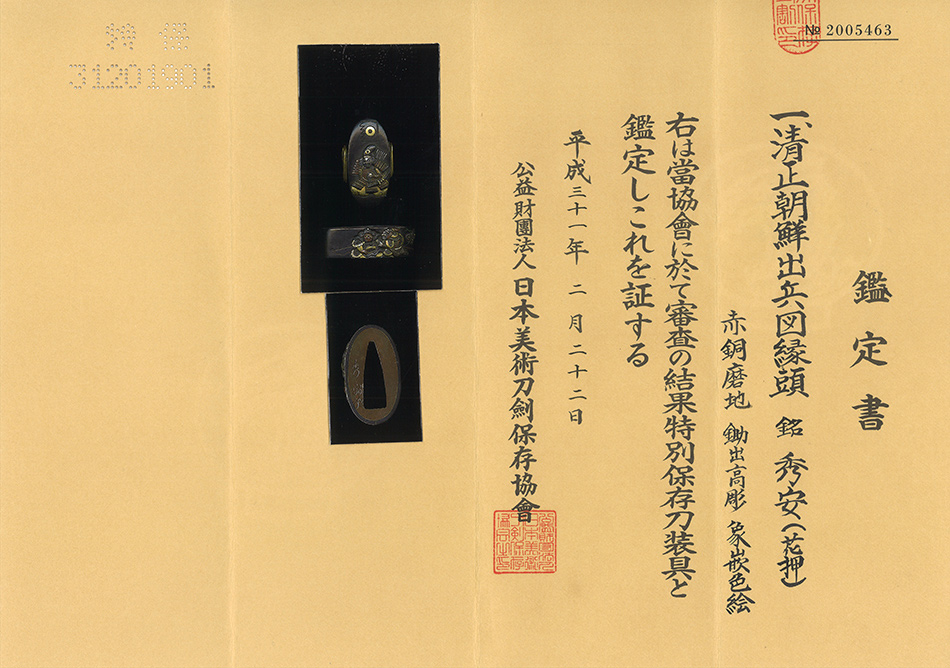 № 2005463
鑑定書
一、清正朝鮮出兵図縁頭 銘 秀安(花押)
赤銅磨地 鋤出高彫 象嵌色絵
右は當協會に於て審査の結果特別保存刀装具と
鑑定しこれを証する
平成三十一年 二月二十二日
公益財團法人 日本美術刀劍保存協會
特保
31201901